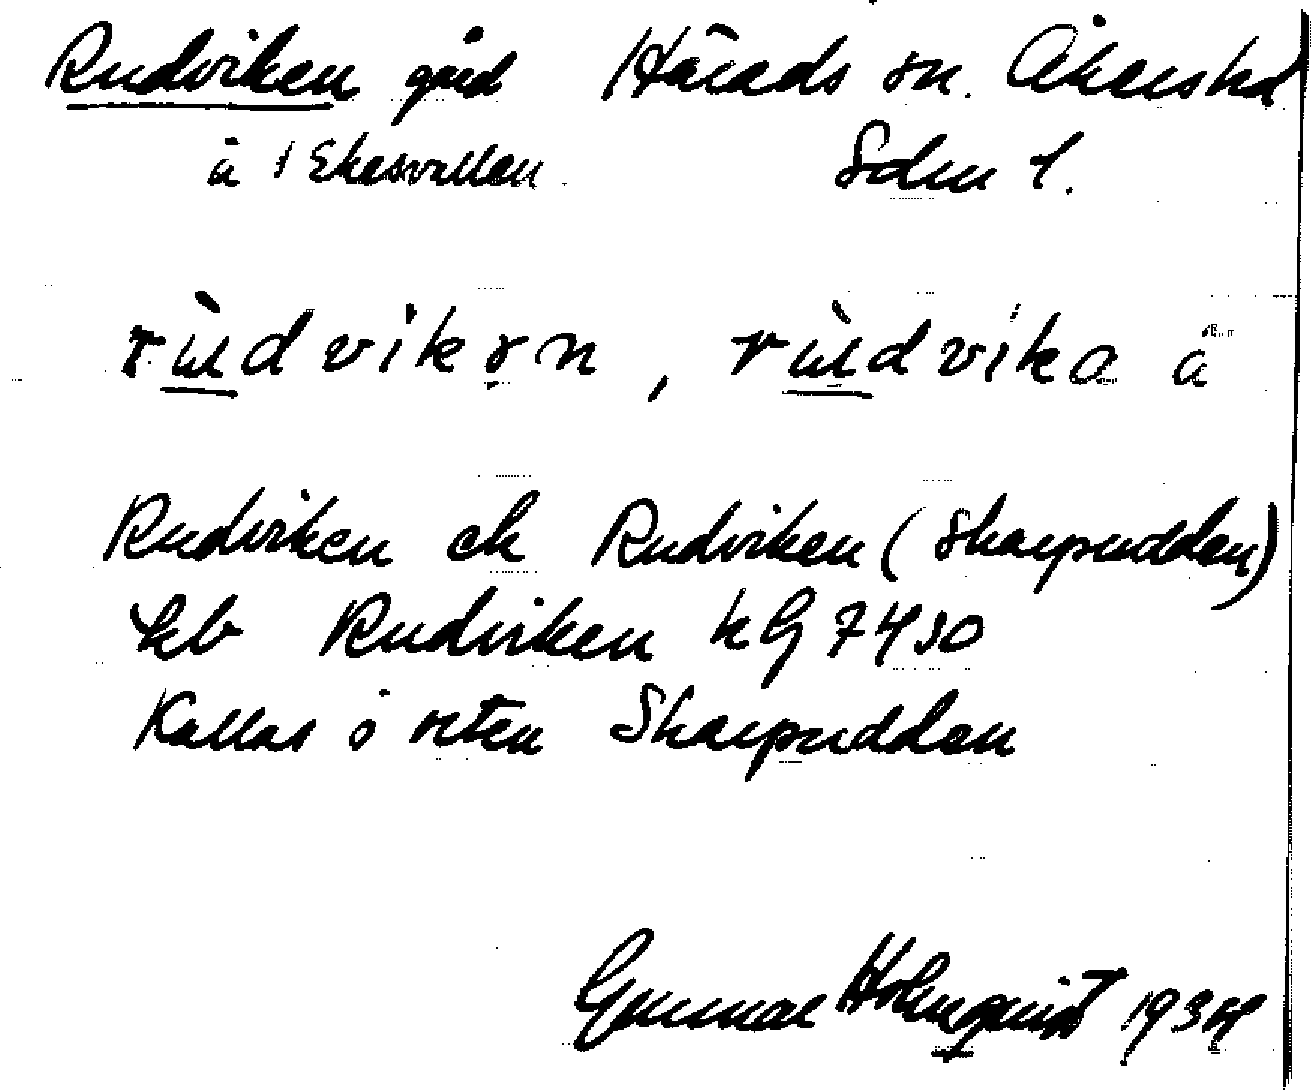 Rudviken gård Härads sn. Åkers hd
å 1 Ekesvallen Sdm l.
rùdvikən, rùdvika å
Rudviken ek Rudviken (Skarpudden)
kb Rudviken hG 7430
Kallas i orten Skarpudden
Gunnar Holmquist 1934